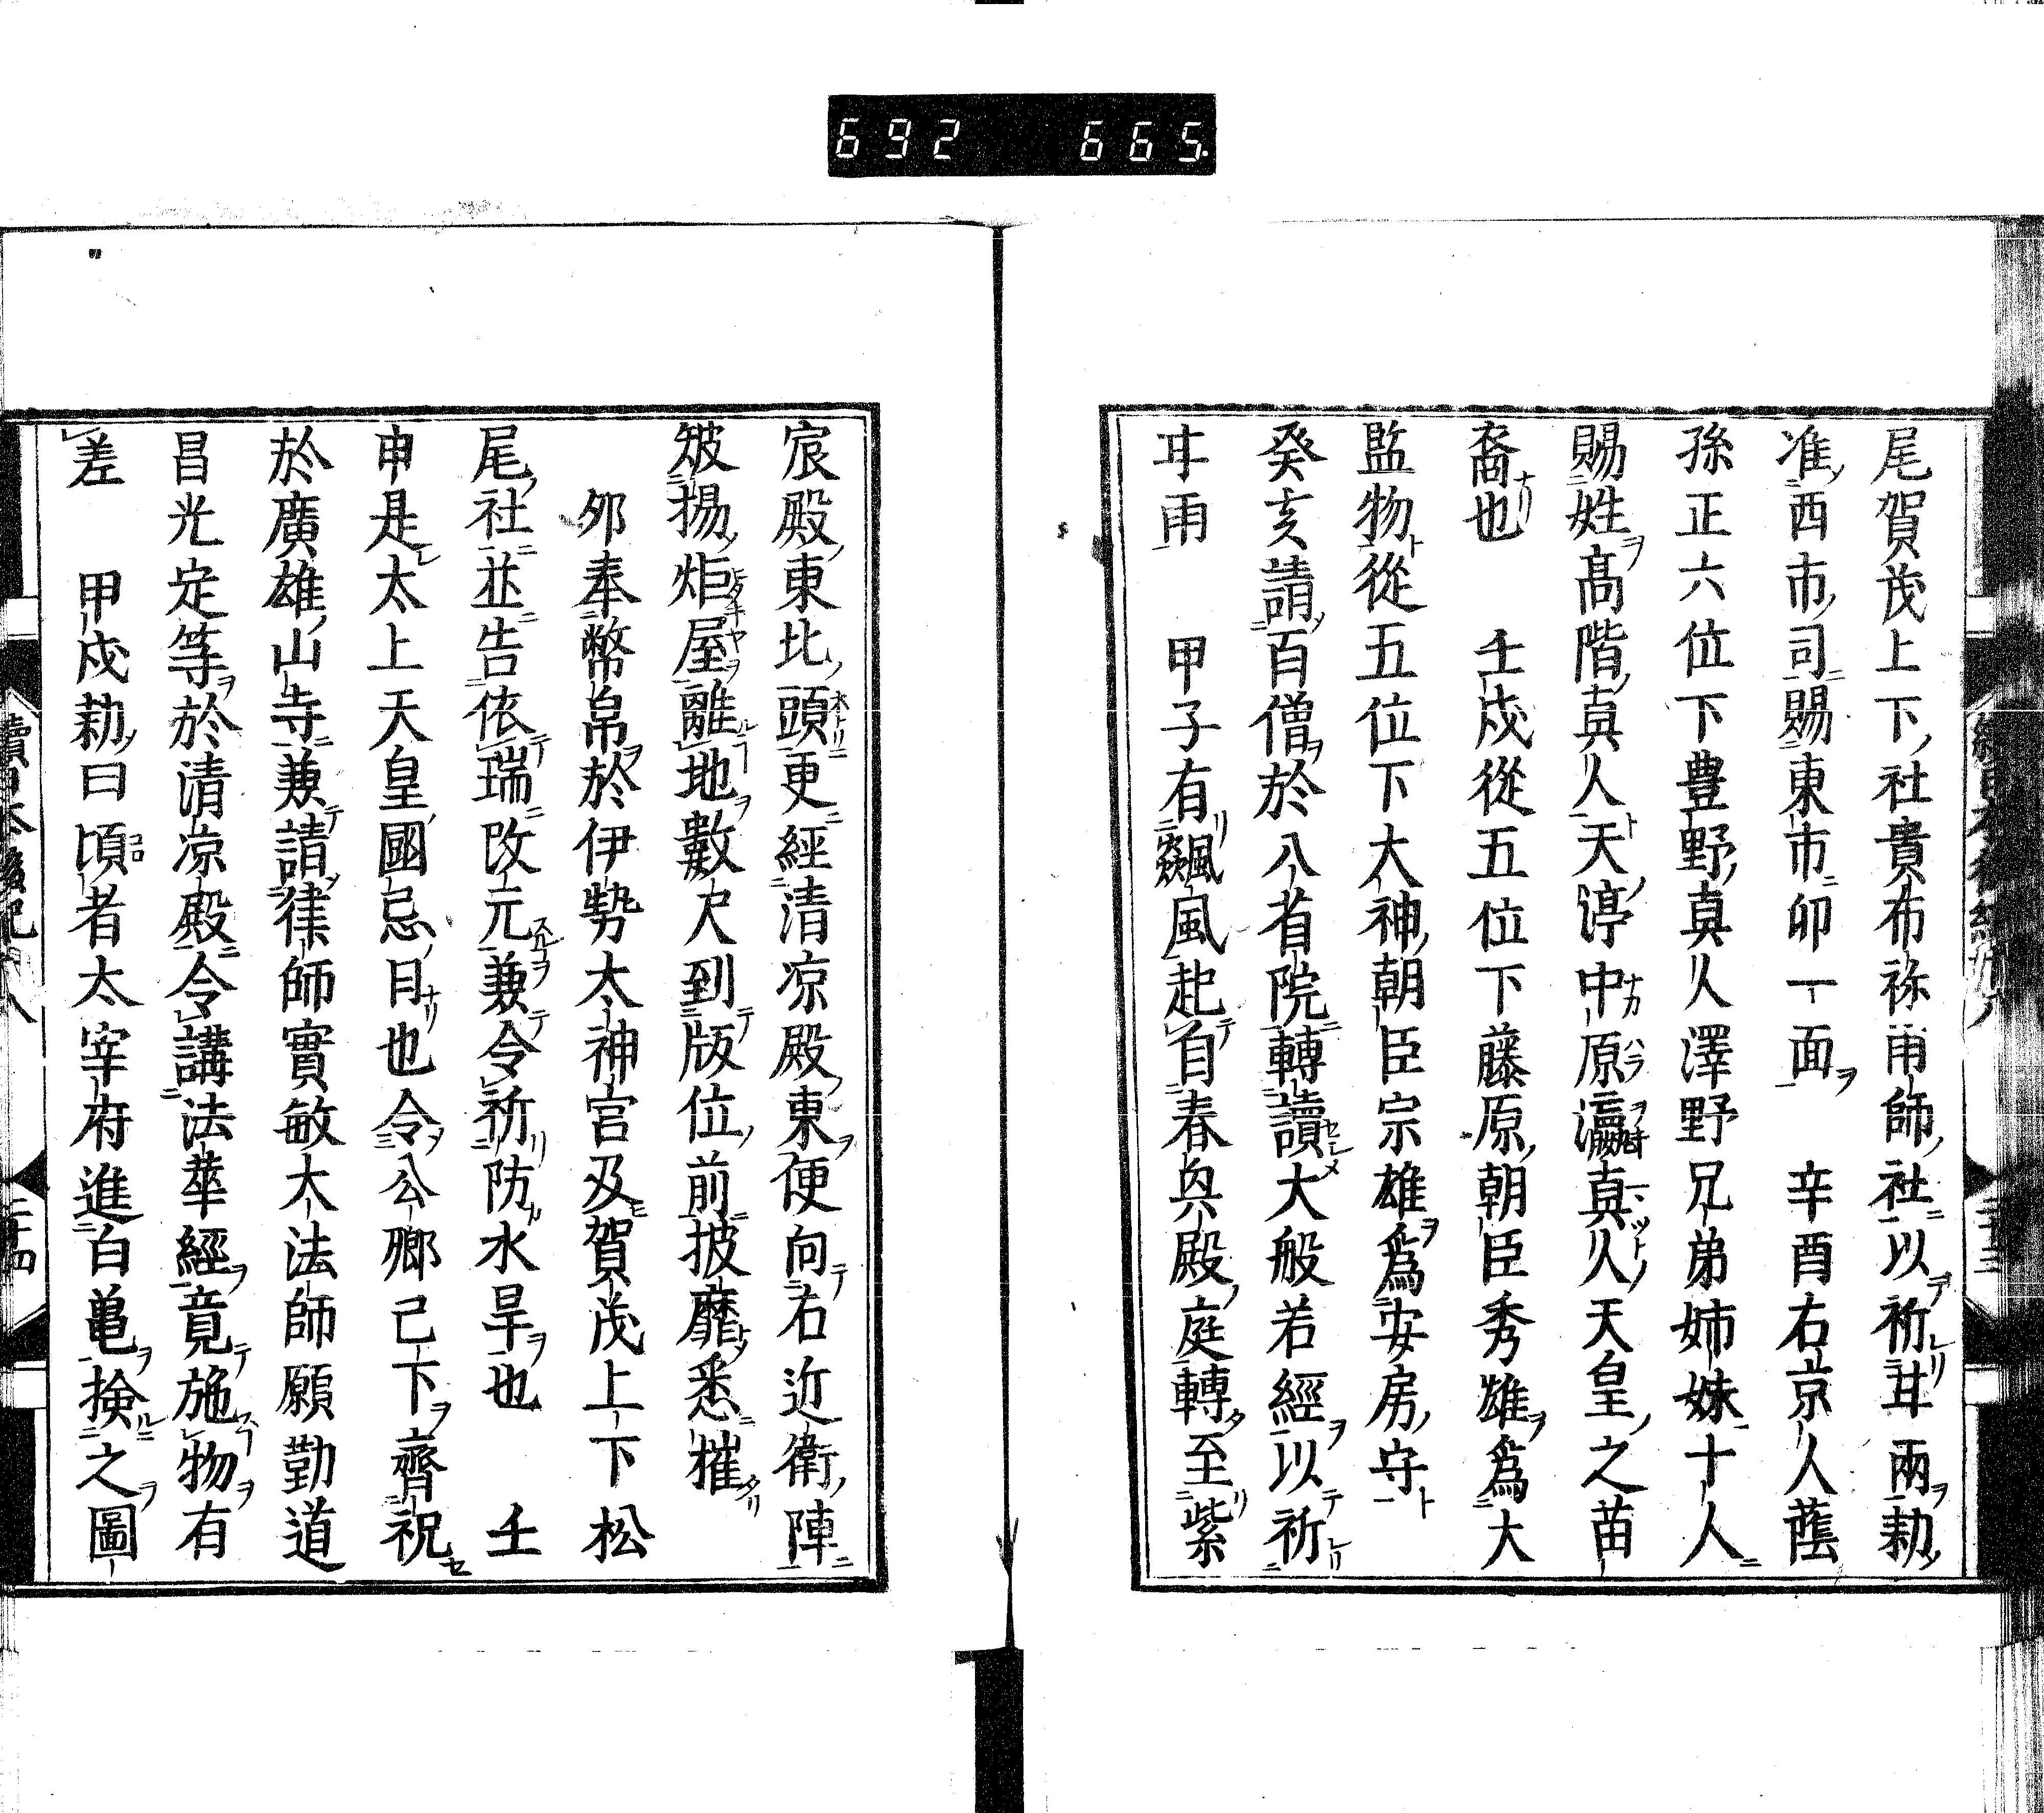 692 665.
尾賀茂上下社貴布祢雨師社以祈甘雨勅
准西市司賜東市卯一面　辛酉右京人蔭
孫正六位下豊野真人澤野兄弟姉妹十人
賜姓髙階真人天渟中原瀛真人天皇之苗
裔也　壬戌從五位下藤原朝臣秀雄為大
監物從五位下大神朝臣宗雄為安房守
癸亥請百僧於八省院轉讀大般若經以祈
甘雨　甲子有飈風起自春興殿庭轉至紫
宸殿東北頭更經清凉殿東便向右近衛陣
皷揚炬屋離地數尺到版位前披靡悉摧
夘奉幣帛於伊勢太神宮及賀茂上下松
尾社並告依瑞改元兼令祈防水旱也　壬
申是太上天皇國忌日也令公卿已下齊祝
於廣雄山寺兼請律師實敏大法師願勤道
昌光定等於清凉殿令講法華經竟施物有
差　甲戌勅曰頃者太宰府進白亀撿之圖
續日本後紀 二十四